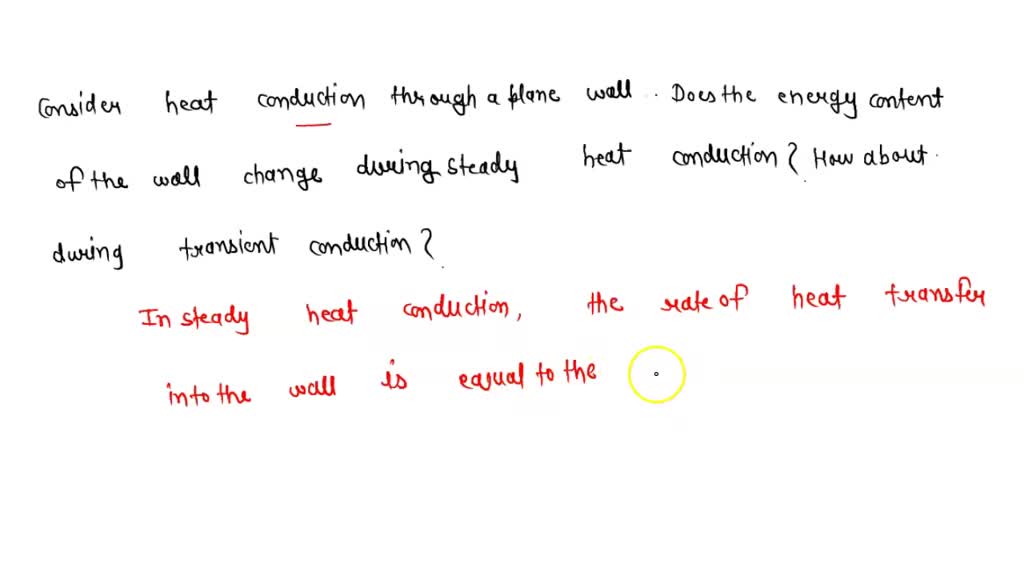 Consider heat conduction through a plane wall. Does the energy content
of the wall change during steady heat conduction? How about
during transient conduction?
In steady heat conduction, the rate of heat transfer
into the wall is equal to the